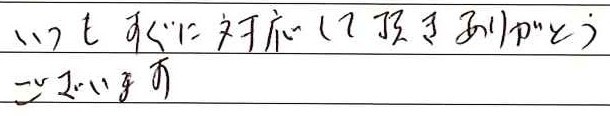 いつも すぐに 対応して 頂き ありがとう
ございます